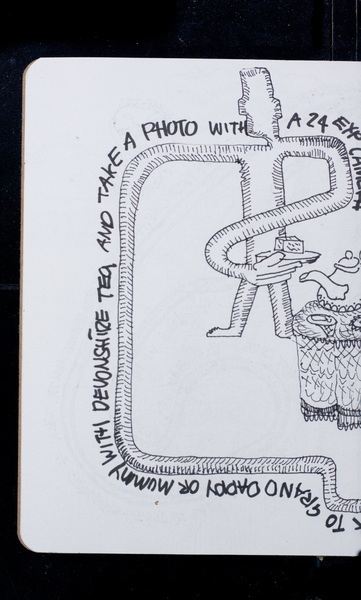 TO GRAND DADDY OR MUMMY WITH DEVONSHIRE TEA, AND TAKE A PHOTO WITH A 24 EXP CAMERA